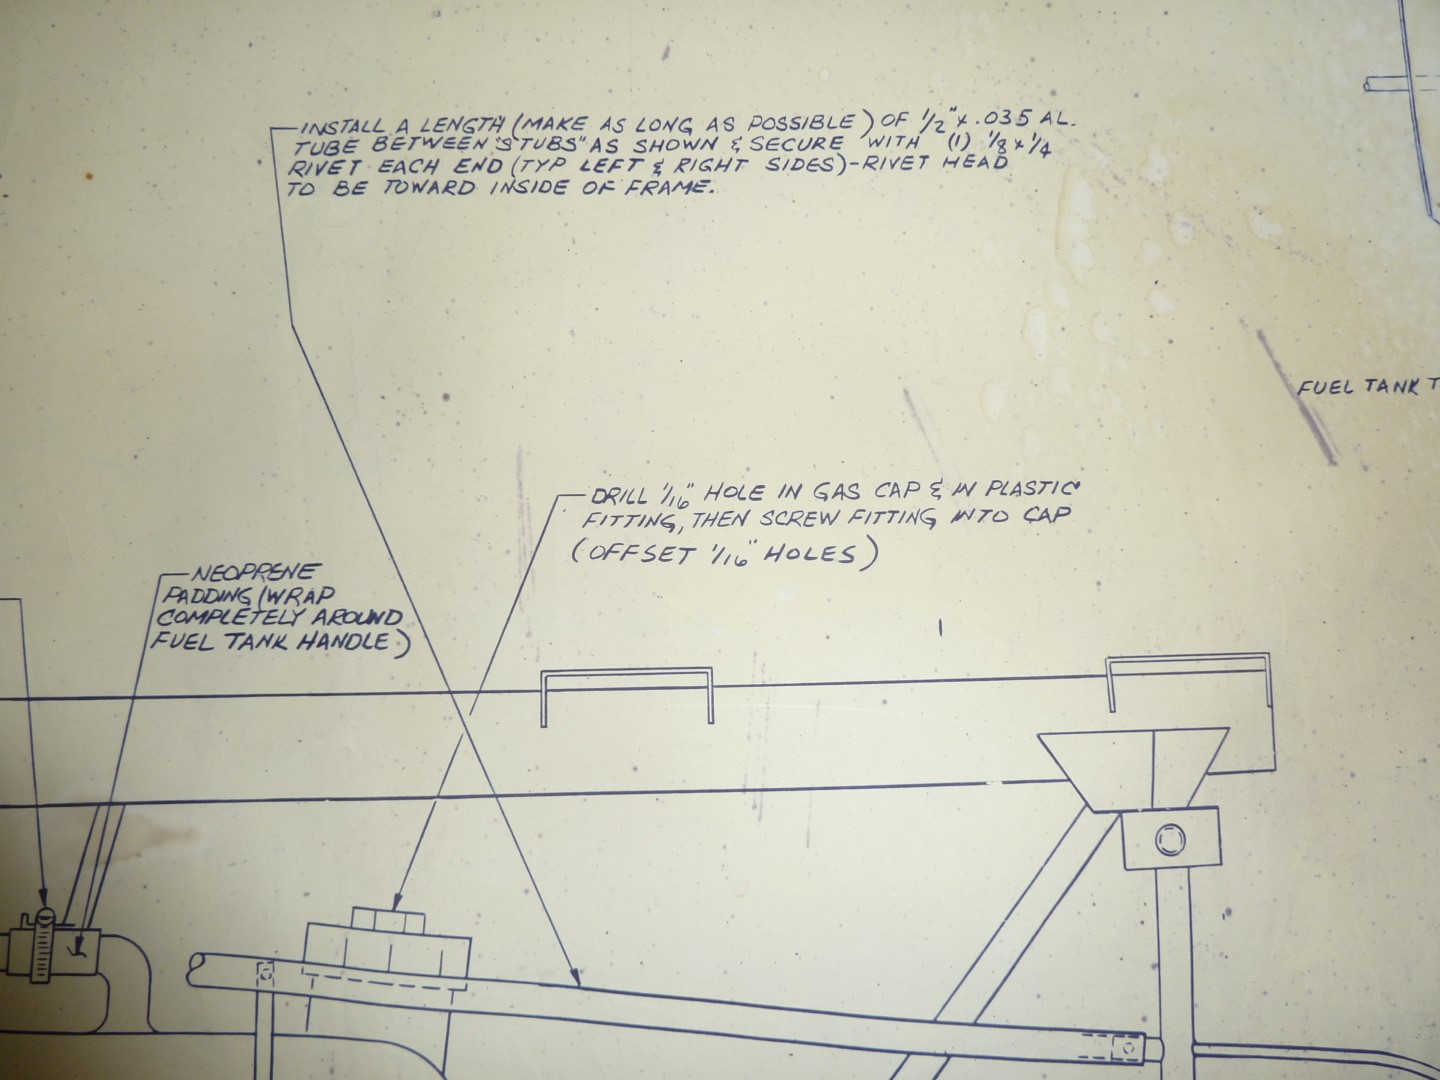 INSTALL A LENGTH (MAKE AS LONG AS POSSIBLE) OF 1/2" x .035 AL.
TUBE BETWEEN "STUBS" AS SHOWN & SECURE WITH (1) 1/8 x 1/4
RIVET EACH END (TYP LEFT & RIGHT SIDES)-RIVET HEAD
TO BE TOWARD INSIDE OF FRAME.
FUEL TANK T
DRILL 1/16" HOLE IN GAS CAP & IN PLASTIC
FITTING, THEN SCREW FITTING INTO CAP
(OFFSET 1/16" HOLES)
NEOPRENE
PADDING (WRAP
COMPLETELY AROUND
FUEL TANK HANDLE)